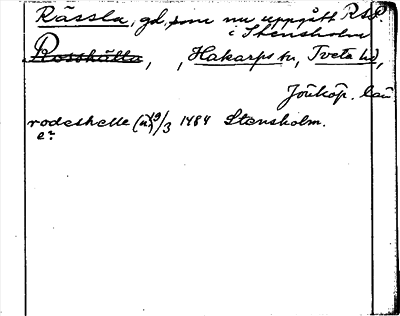 Rässla, gd, som nu uppgått
i Stensholm
Rosshälla, , Hakarps sn, Tveta hd,
Jönköp. län
rodeskelle (u) 19/3 1484 Stensholm.
e?